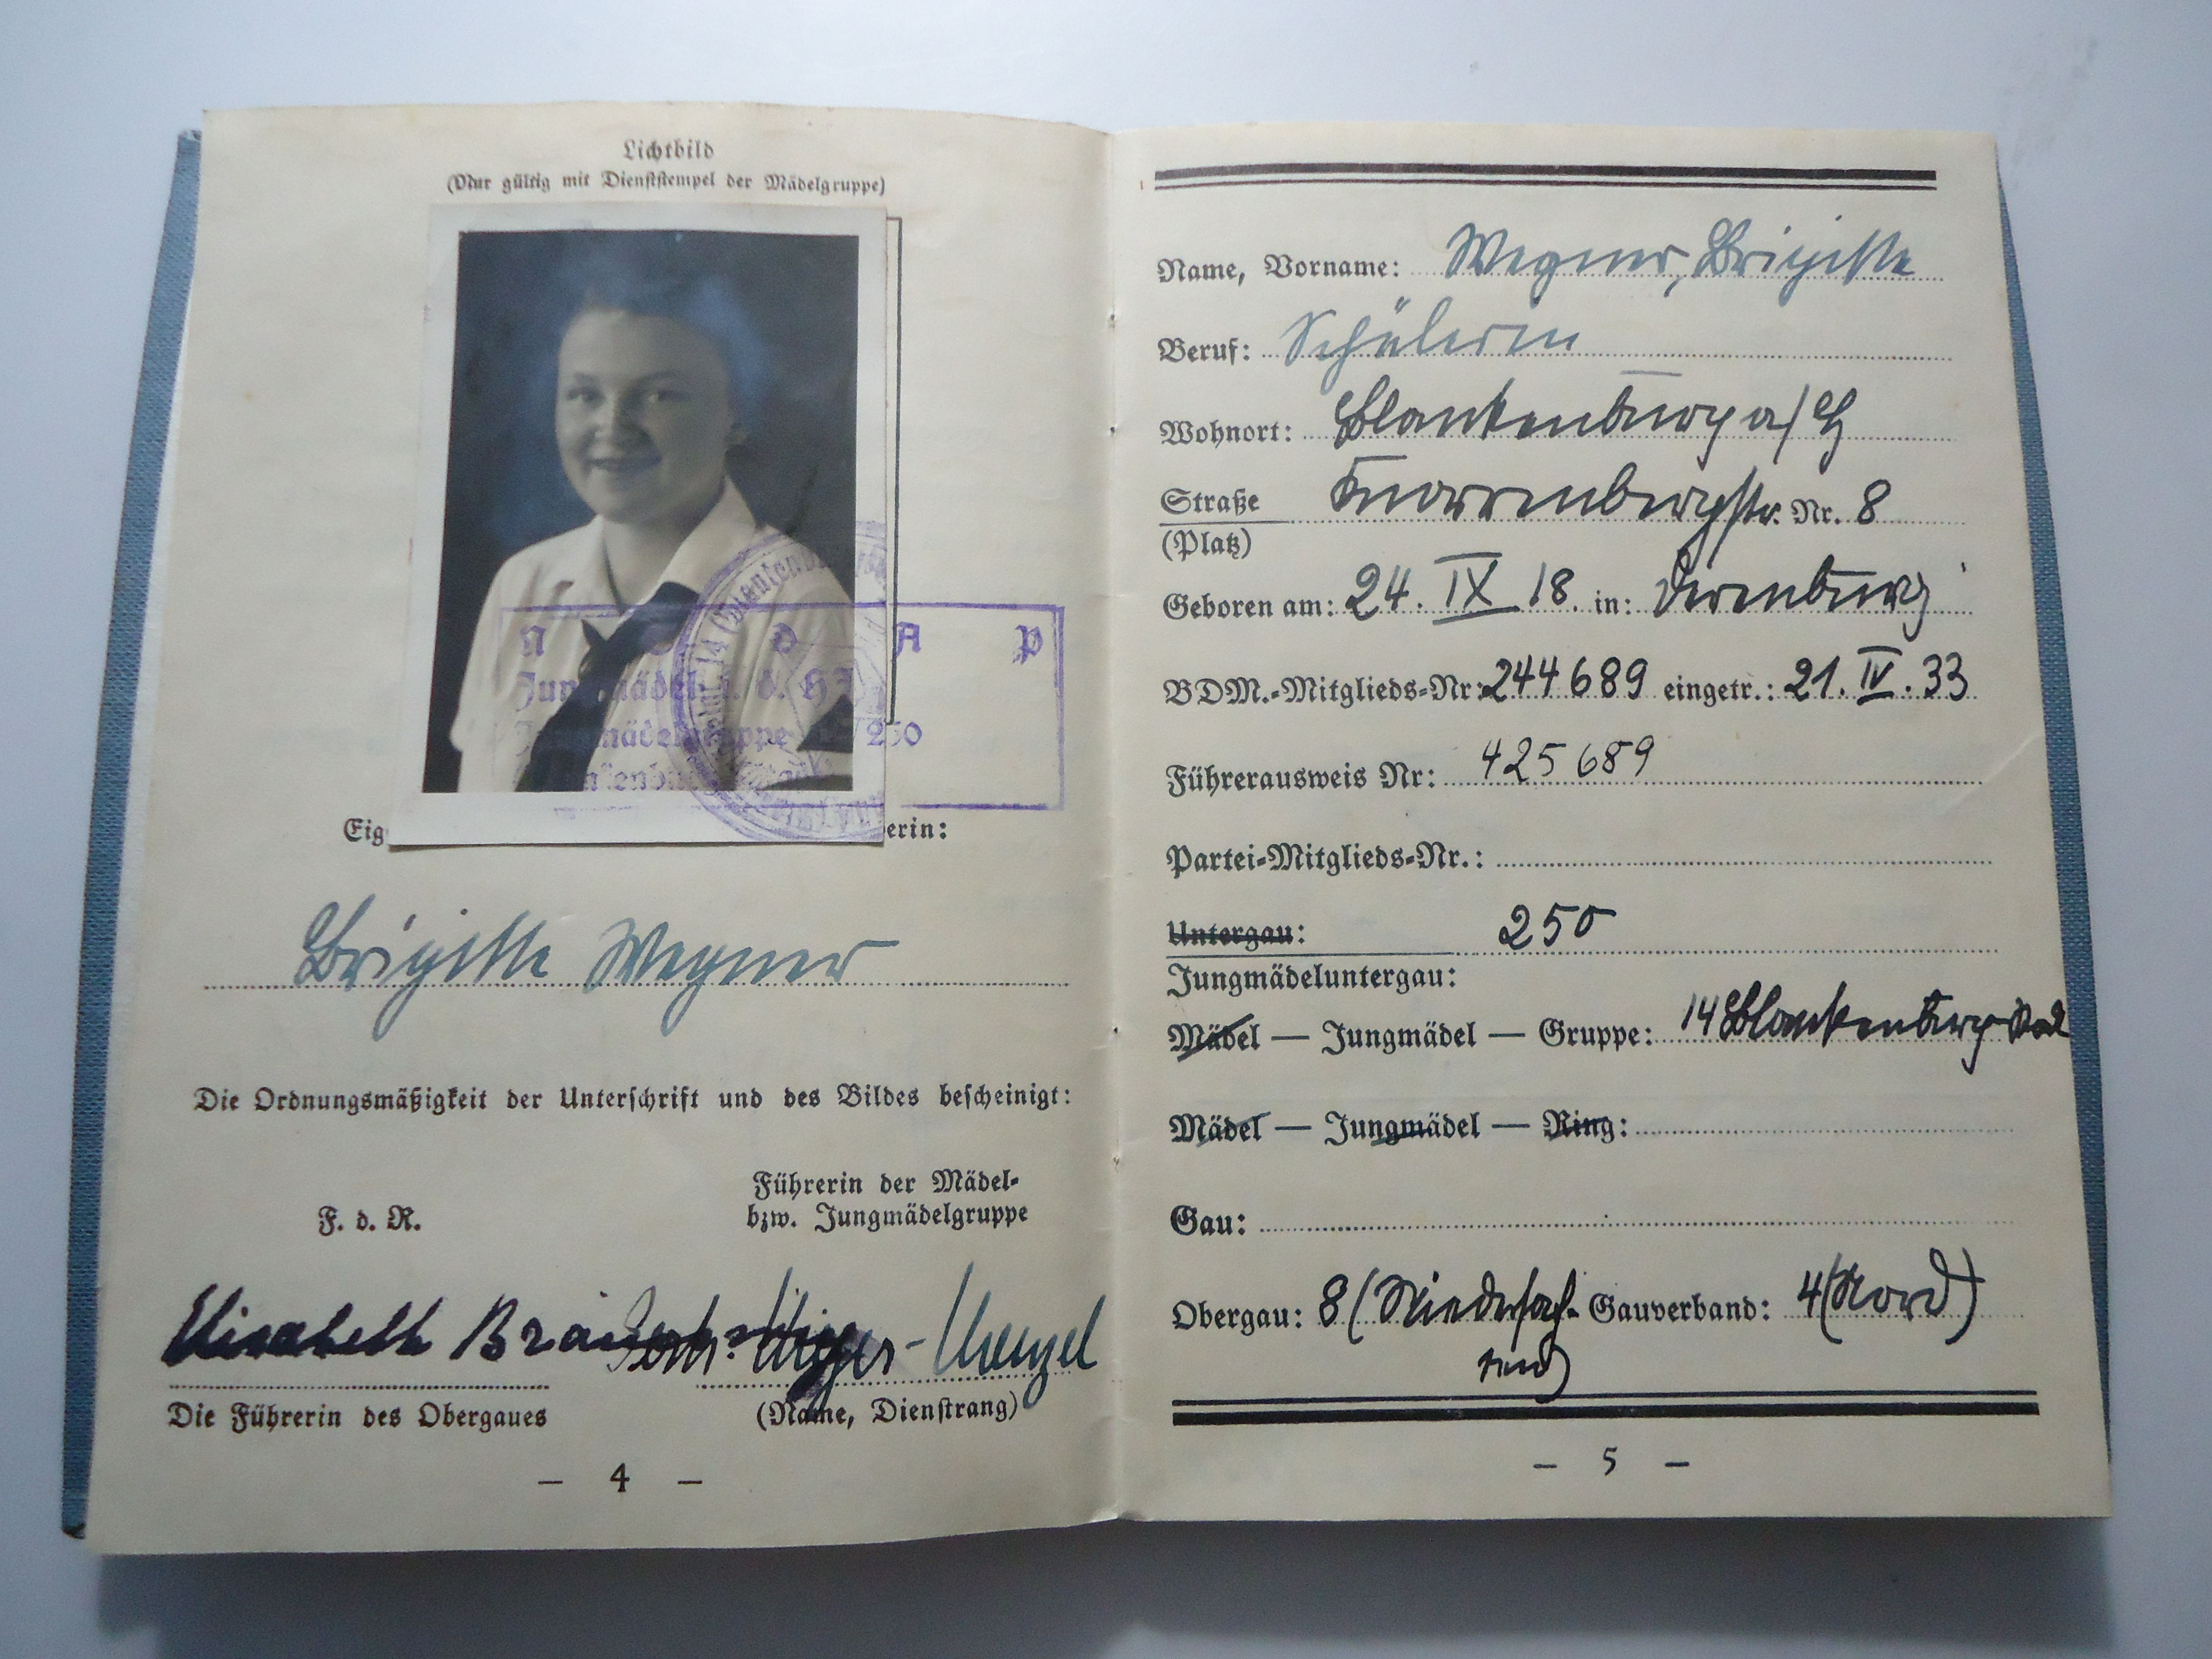 Lichtbild
(Nur gültig mit Dienststempel der Mädelgruppe)
N S D A P
Jungmädel i. d. HJ
250
Eig erin:
Brigitte Wegner
Die Ordnungsmäßigkeit der Unterschrift und des Bildes bescheinigt:
F. d. R.
Führerin der Mädel-
bzw. Jungmädelgruppe
Elisabeth
Die Führerin des Obergaues
(Name, Dienstrang)
— 4 —
Name, Vorname: Wegner, Brigitte
Beruf: Schülerin
Wohnort: Blankenburg a/H
Straße Knorrenbergstr. Nr. 8
(Platz)
Geboren am: 24. IX. 18. in: Derenburg
BDM.-Mitglieds-Nr: 244689 eingetr.: 21. IV. 33
Führerausweis Nr: 425689
Partei-Mitglieds-Nr.:
Untergau: 250
Jungmädeluntergau:
Mädel — Jungmädel — Gruppe: 14 Blankenburg
Mädel — Jungmädel — Ring:
Gau:
Obergau: 8 (Niedersach- Gauverband: 4 (Nord)
sen)
— 5 —